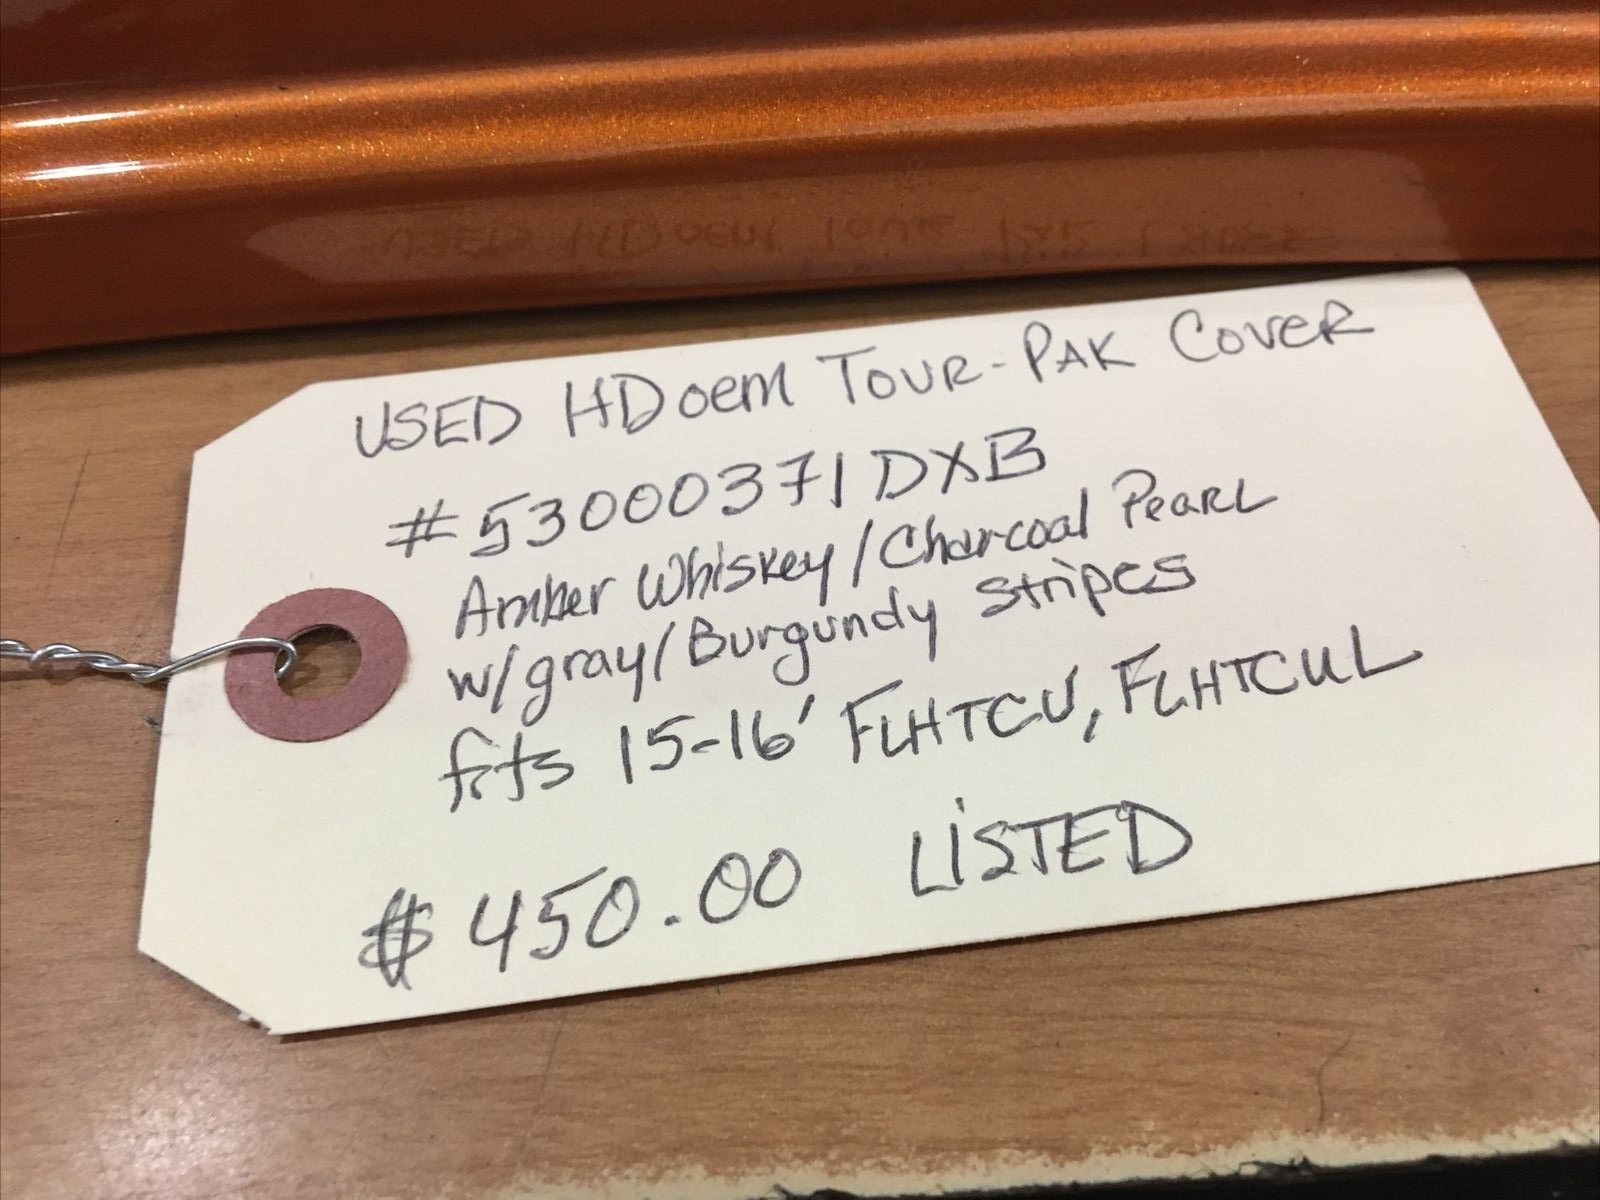 USED HD oem TOUR-PAK COVER
#53000371DXB
Amber Whiskey/Charcoal Pearl
w/gray/Burgundy stripes
fits 15-16' FLHTCU, FLHTCUL
$450.00 LiSTED